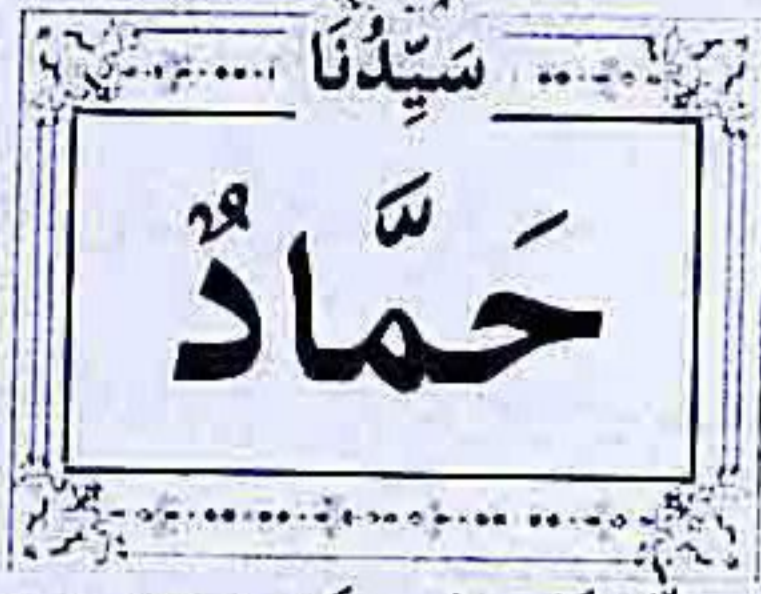 سَيِّدُنَا
حَمَّادٌ